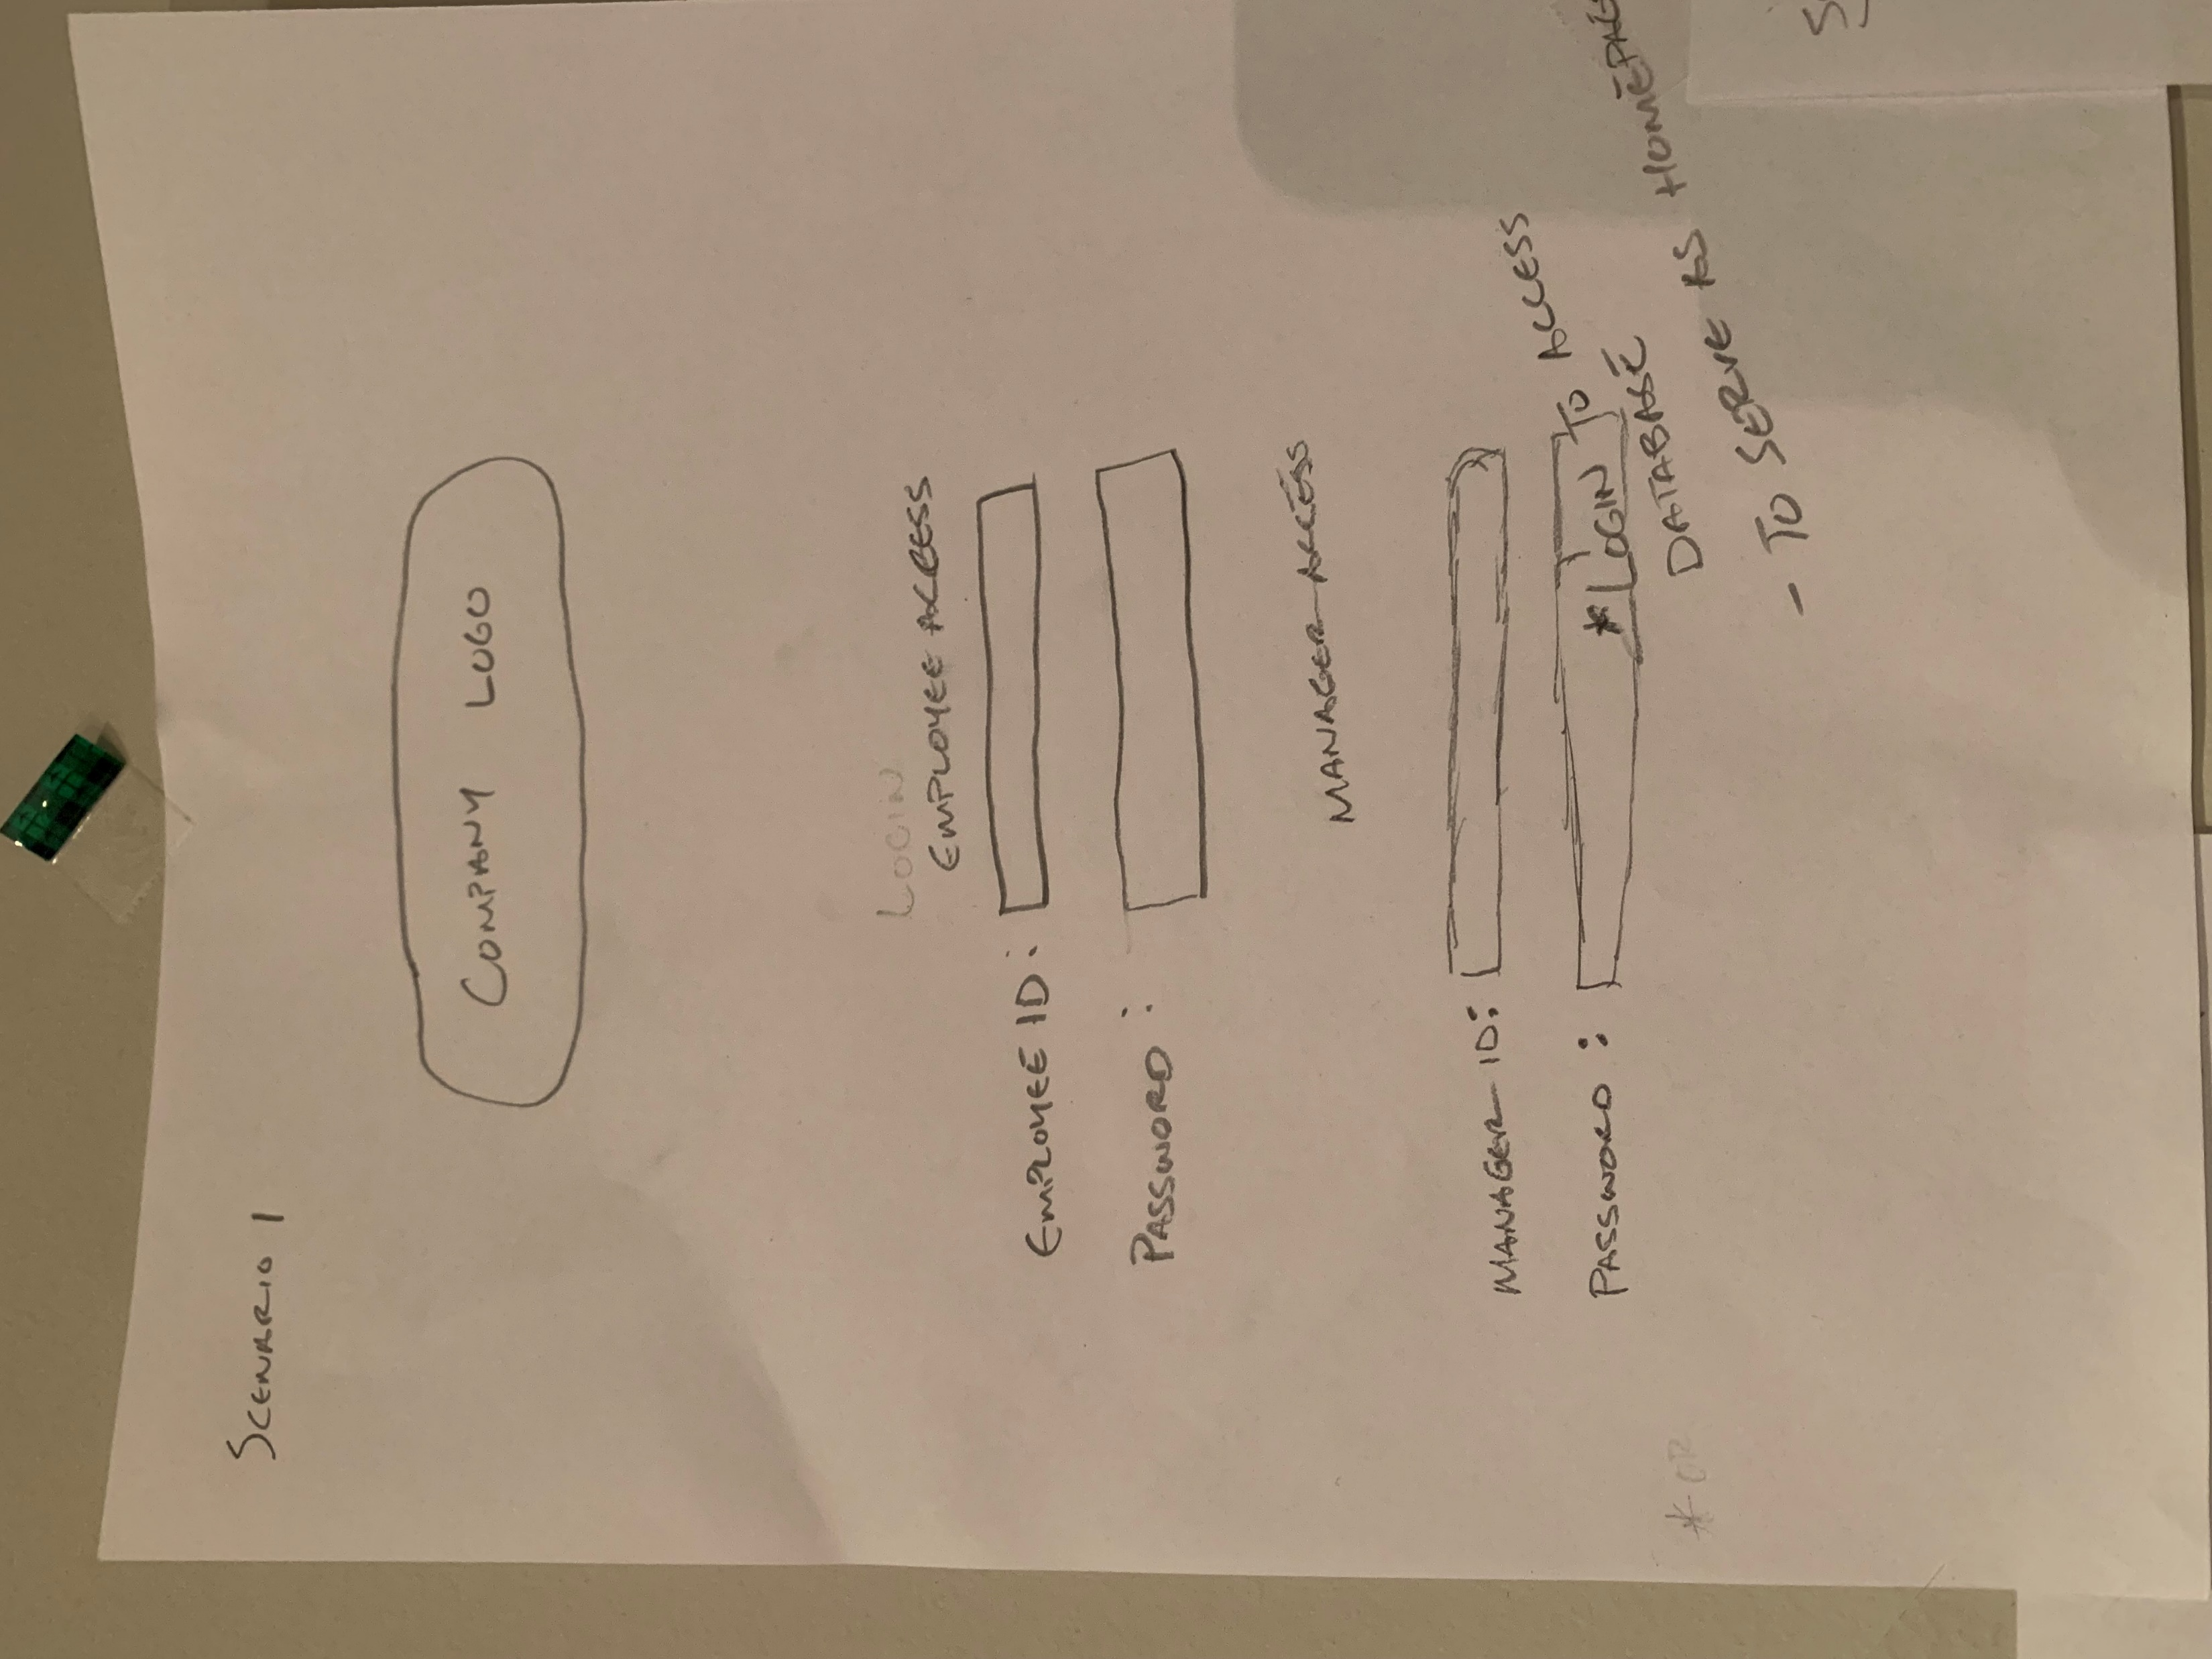 SCENARIO 1
COMPANY LOGO
LOGIN
EMPLOYEE ACCESS
EMPLOYEE ID:
PASSWORD:
MANAGER ACCESS
MANAGER ID:
PASSWORD:
*LOGIN TO ACCESS
DATABASE
- TO SERVE AS HOMEPAGE
* OR